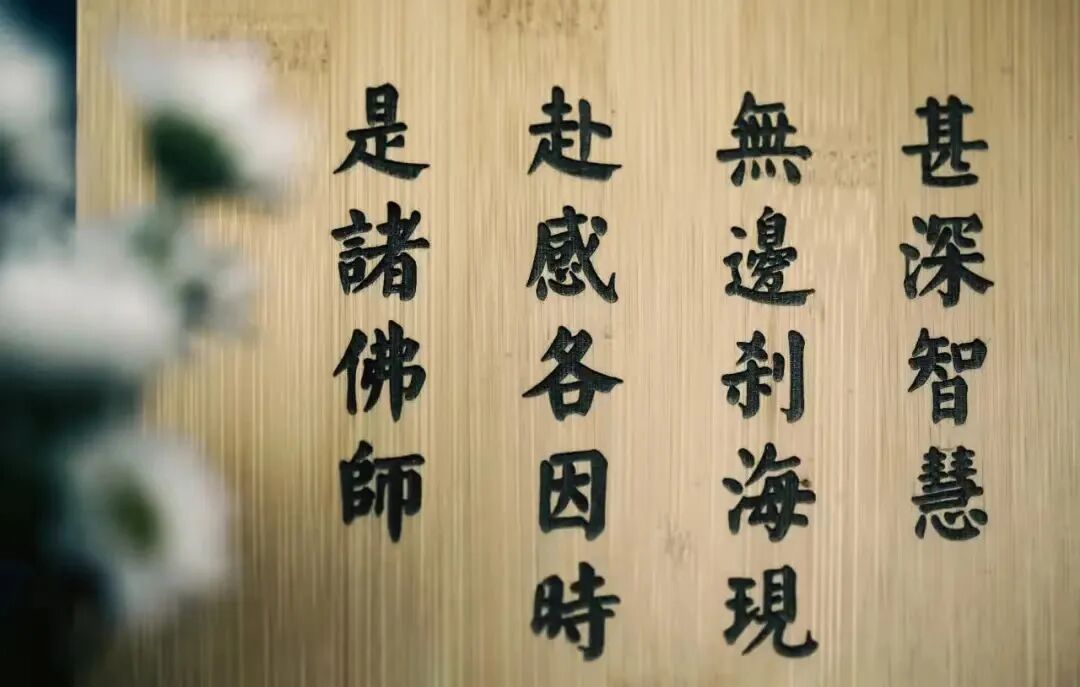 甚深智慧
無邊刹海現
赴感各因時
是諸佛師